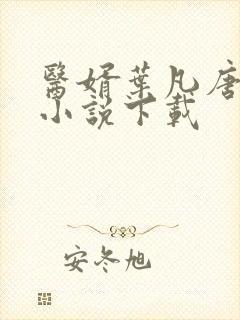 醫婿葉凡唐
小說下載
安冬旭